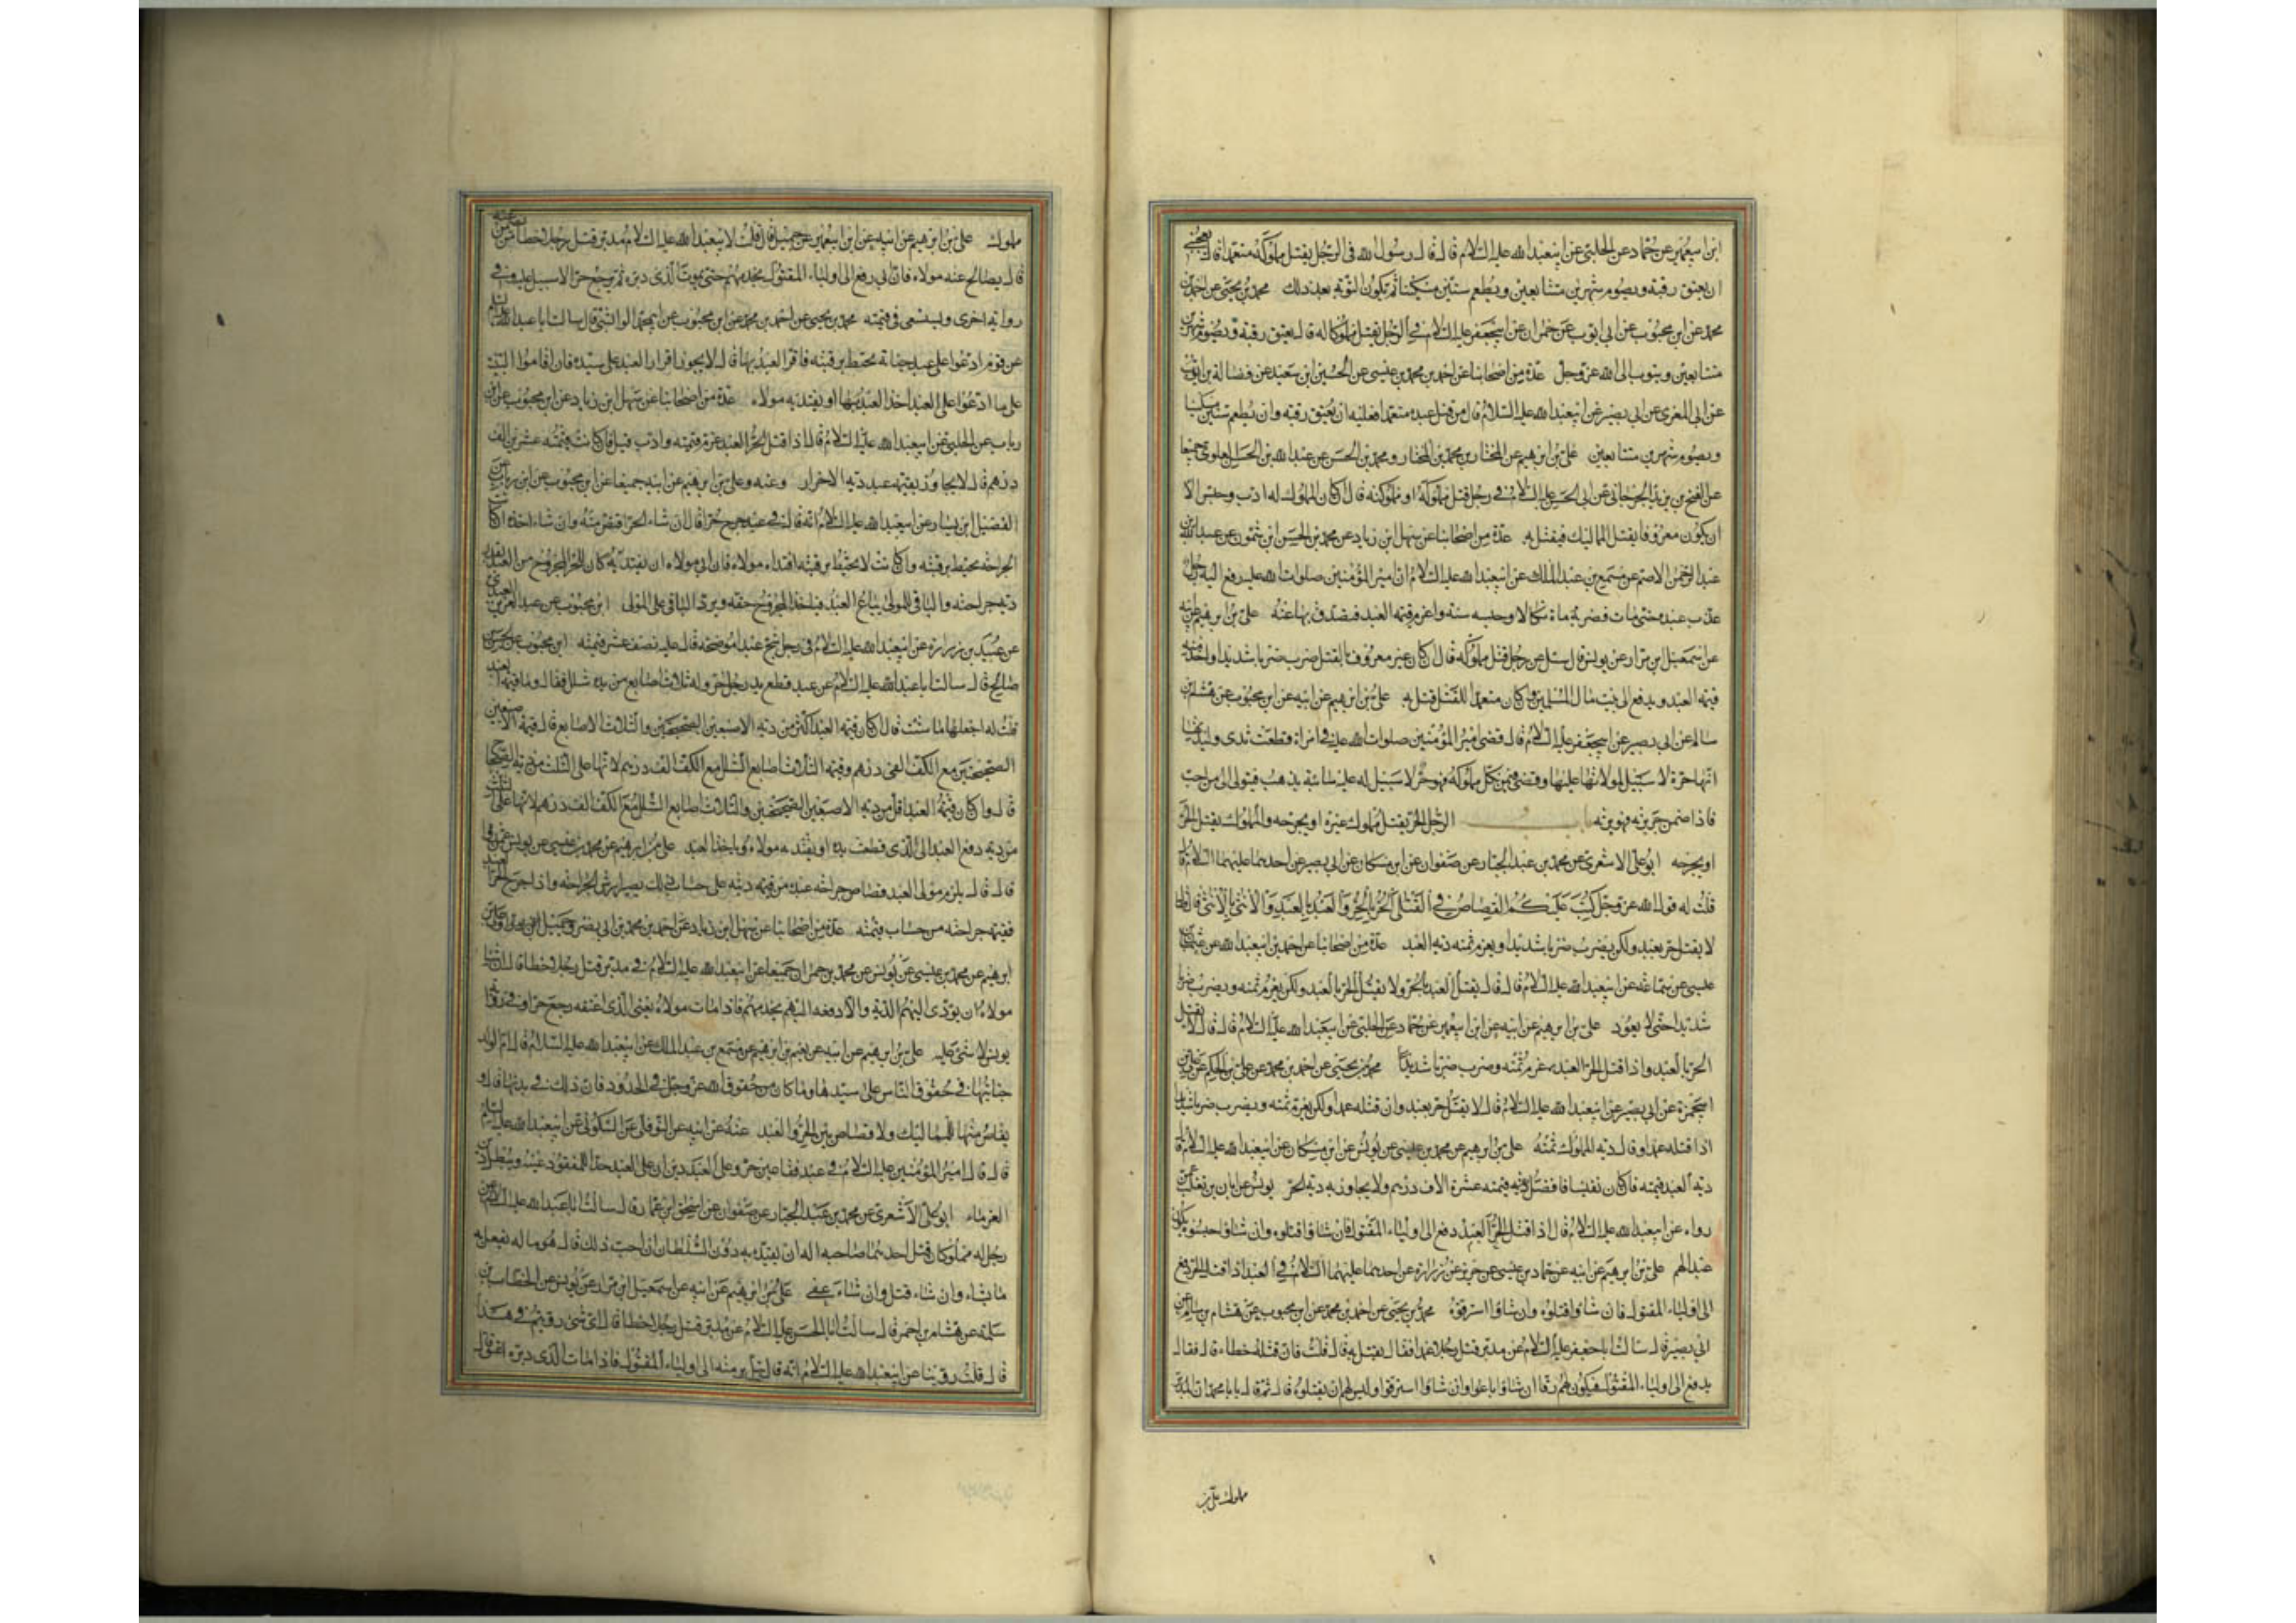 ابن ابي عمير عن حماد عن الحلبي عن ابي عبد الله عليه السلام قال قال رسول الله في الرجل يقتل مملوكه متعمدا قال يعجبني
ان يعتق رقبة ويصوم شهرين متتابعين ويطعم ستين مسكينا ثم تكون التوبة بعد ذلك محمد بن يحيى عن احمد بن
محمد عن ابن محبوب عن ابي ايوب عن حمران عن ابي جعفر عليه السلام في الرجل يقتل مملوكا له قال يعتق رقبة ويصوم شهرين
متتابعين ويتوب الى الله عز وجل عدة من اصحابنا عن احمد بن محمد بن عيسى عن الحسين ابن سعيد عن فضالة بن ايوب
عن ابي المغرى عن ابي بصير عن ابي عبد الله عليه السلام قال من قتل عبده متعمدا فعليه ان يعتق رقبة وان يطعم ستين مسكينا
ويصوم شهرين متتابعين علي بن ابراهيم عن المختار بن محمد بن المختار ومحمد بن الحسن عن عبد الله بن الحسن العلوي جميعا
عن الفتح بن يزيد الجرجاني عن ابي الحسن عليه السلام في رجل قتل مملوكه او مملوكته قال ان كان المملوك له ادب وحبس الا
ان يكون معروفا بقتل المماليك فيقتل به عدة من اصحابنا عن سهل ابن زياد عن محمد بن الحسن ابن شمون عن عبد الله ابن
عبد الرحمن الاصم عن مسمع بن عبد الملك عن ابي عبد الله عليه السلام ان امير المؤمنين صلوات الله عليه رفع اليه رجل
عذب عبده حتى مات فضربه مائة نكالا وحبسه سنة واغرم قيمة العبد فتصدق بها عنه علي بن ابراهيم عن ابيه
عن اسمعيل ابن مرار عن يونس قال سئل عن رجل قتل مملوكه قال ان كان غير معروف بالقتل ضرب ضربا شديدا واخذ منه
قيمة العبد ويدفع الى بيت مال المسلمين وان كان متعمدا للقتل قتل به علي بن ابراهيم عن ابيه عن ابن محبوب عن هشام بن
سالم عن ابي بصير عن ابي جعفر عليه السلام قال قضى امير المؤمنين صلوات الله عليه في امراة قطعت ثدي وليدتها
انها حرة لا سبيل لمولاتها عليها وقضى فيمن نكل مملوكه فهو حر لا سبيل له عليه سائبة يذهب فيتولى الى من احب
فاذا ضمن جريرته فهو يرثه الرجل الحر يقتل مملوك غيره او يجرحه والمملوك يقتل الحر
او يجرحه ابو علي الاشعري عن محمد بن عبد الجبار عن صفوان عن ابن مسكان عن ابي بصير عن احدهما عليهما السلام قال
قلت له قول الله عز وجل كتب عليكم القصاص في القتلى الحر بالحر والعبد بالعبد والانثى بالانثى قال قال
لا يقتل حر بعبد ولكن يضرب ضربا شديدا ويغرم ثمنه دية العبد عدة من اصحابنا عن احمد بن ابي عبد الله عن عثمان بن
عيسى عن سماعة عن ابي عبد الله عليه السلام قال قال يقتل العبد بالحر ولا يقتل الحر بالعبد ولكن يغرم ثمنه ويضرب ضربا
شديدا حتى لا يعود علي بن ابراهيم عن ابيه عن ابن ابي عمير عن حماد عن الحلبي عن ابي عبد الله عليه السلام قال قال لا يقتل
الحر بالعبد واذا قتل الحر العبد غرم ثمنه وضرب ضربا شديدا محمد بن يحيى عن احمد بن محمد عن علي بن الحكم عن علي بن
ابي حمزة عن ابي بصير عن ابي عبد الله عليه السلام قال لا يقتل حر بعبد وان قتله عمدا ولكن يغرم ثمنه ويضرب ضربا شديدا
اذا قتله عمدا وقال دية المملوك ثمنه علي بن ابراهيم عن محمد بن عيسى عن يونس عن ابن مسكان عن ابي عبد الله عليه السلام قال
دية العبد قيمته فان كان نفيسا فافضل قيمته عشرة الاف درهم ولا يجاوز به دية الحر يونس عن ابان بن تغلب عمن
رواه عن ابي عبد الله عليه السلام قال اذا قتل الحر العبد دفع الى اولياء المقتول فان شاؤا قتلوه وان شاؤا حبسوه يكون
عبدا لهم علي بن ابراهيم عن ابيه عن حماد بن عيسى عن حريز عن زرارة عن احدهما عليهما السلام في العبد اذا قتل الحر دفع
الى اولياء المقتول فان شاؤا قتلوه وان شاؤا استرقوه محمد بن يحيى عن احمد بن محمد عن ابن محبوب عن هشام بن سالم عن
ابي بصير قال سالت ابا جعفر عليه السلام عن مدبر قتل رجلا عمدا فقال يقتل به قال قلت فان قتله خطاء قال فقال
يدفع الى اولياء المقتول فيكون لهم رقا ان شاؤا باعوا وان شاؤا استرقوا وليس لهم ان يقتلوه قال ثم قال يا با محمد ان المدبر
مملوك علي بن
مملوك علي بن ابراهيم عن ابيه عن ابن ابي عمير عن جميل قال قلت لابي عبد الله عليه السلام مدبر قتل رجلا خطأ من يضمن عنه
قال يصالح عنه مولاه فان ابى رفع الى اولياء المقتول يخدمهم حتى يموت الذي دبره ثم يرجع حرا لا سبيل عليه وفي
رواية اخرى ويستسعى في قيمته محمد بن يحيى عن احمد بن محمد عن ابن محبوب عن ابي محمد الوابشي قال سالت ابا عبد الله عليه السلام
عن قوم ادعوا على عبد جناية تحيط برقبته فاقر العبد بها قال لا يجوز اقرار العبد على سيده فان اقاموا البينة
على ما ادعوا على العبد اخذ العبد بها او يفتديه مولاه عدة من اصحابنا عن سهل ابن زياد عن ابن محبوب عن ابن
رباب عن الحلبي عن ابي عبد الله عليه السلام قال اذا قتل الحر العبد غرم قيمته وادب قيل فان كانت قيمته عشرين الف
درهم قال لا يجاوز بقيمته عبد دية الاحرار وعنه وعلي بن ابراهيم عن ابيه جميعا عن ابن محبوب عن ابن رباب عن
الفضيل ابن يسار عن ابي عبد الله عليه السلام انه قال في عبد جرح حرا قال ان شاء الحر اقتص منه وان شاء اخذه ان كانت
الجراحة تحيط برقبته وان كانت لا تحيط برقبته افتداه مولاه فان ابى مولاه ان يفتديه كان للحر المجروح من العبد بقدر
دية جراحته والباقي للمولى يباع العبد فياخذ المجروح حقه ويرد الباقي على المولى ابن محبوب عن عبد العزيز العبدي
عن عبيد بن زرارة عن ابي عبد الله عليه السلام في رجل شج عبدا موضحة قال عليه نصف عشر قيمته ابن محبوب عن الحسن بن
صالح قال سالت ابا عبد الله عليه السلام عن عبد قطع يد رجل حر وله ثلاث اصابع من يده شلل فقال وما قيمة العبد
قلت له اجعلها ما شئت قال ان كان قيمة العبد اكثر من دية الاصبعين الصحيحتين والثلاث الاصابع قال قيمة الاصبعين
الصحيحتين مع الكف الفي درهم وقيمة الثلاث اصابع الشلل مع الكف الف درهم لانها على الثلث من دية الصحاح
قال وان كان قيمة العبد اقل من دية الاصبعين الصحيحتين والثلاث اصابع الشلل مع الكف الف درهم لانها على الثلث
من دية دفع العبد الى الذي قطعت يده او يفتديه مولاه وياخذ العبد علي بن ابراهيم عن محمد بن عيسى عن يونس
قال قال يلزم مولى العبد قصاص جراحة عبده من قيمة ديته على حساب ذلك يصير ارش الجراحة واذا جرح الحر العبد
فقيمة جراحته من حساب قيمته عدة من اصحابنا عن سهل ابن زياد عن احمد بن محمد بن ابي نصر عن جميل
ابراهيم عن محمد بن عيسى عن يونس عن محمد بن حمران جميعا عن ابي عبد الله عليه السلام في مدبر قتل رجلا خطا قال ان شاء
مولاه ان يؤدي اليهم الدية والا دفعه اليهم يخدمهم فاذا مات مولاه يعني الذي اعتقه رجع حرا وفي رواية
يونس لا شئ عليه علي بن ابراهيم عن ابيه عن نعيم بن ابراهيم عن مسمع بن عبد الملك عن ابي عبد الله عليه السلام قال ام الولد
جنايتها في حقوق الناس على سيدها وما كان من حقوق الله عز وجل في الحدود فان ذلك في بدنها قال و
يقاص منها للمماليك ولا قصاص بين الحر والعبد عنه عن ابيه عن النوفلي عن السكوني عن ابي عبد الله عليه السلام
قال قال امير المؤمنين عليه السلام في عبد فقأ عين حر وعلى العبد دين ان على العبد حدا للمفقوء عينه ويبطل دين
الغرماء ابو علي الاشعري عن محمد بن عبد الجبار عن صفوان عن اسحق ابن عمار قال سالت ابا عبد الله عليه السلام عن
رجل له مملوكان قتل احدهما صاحبه اله ان يقيده به دون السلطان ان احب ذلك قال هو ماله يفعل به
ما يشاء وان شاء قتل وان شاء عفى علي بن ابراهيم عن ابيه عن اسمعيل ابن مرار عن يونس عن الخطاب بن
سلمة عن هشام بن احمر قال سالت ابا الحسن عليه السلام عن مدبر قتل رجلا خطا قال اي شئ رويتم في هذا
قال قلت روينا عن ابي عبد الله عليه السلام انه قال يتل برمته الى اولياء المقتول فاذا مات الذي دبره اعتق قال